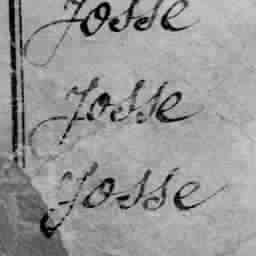 Josse
Josse
Josse